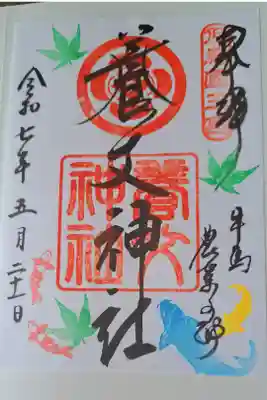 奉拝
牛馬
農業の神
養父神社
養父
神社
令和七年五月二十一日